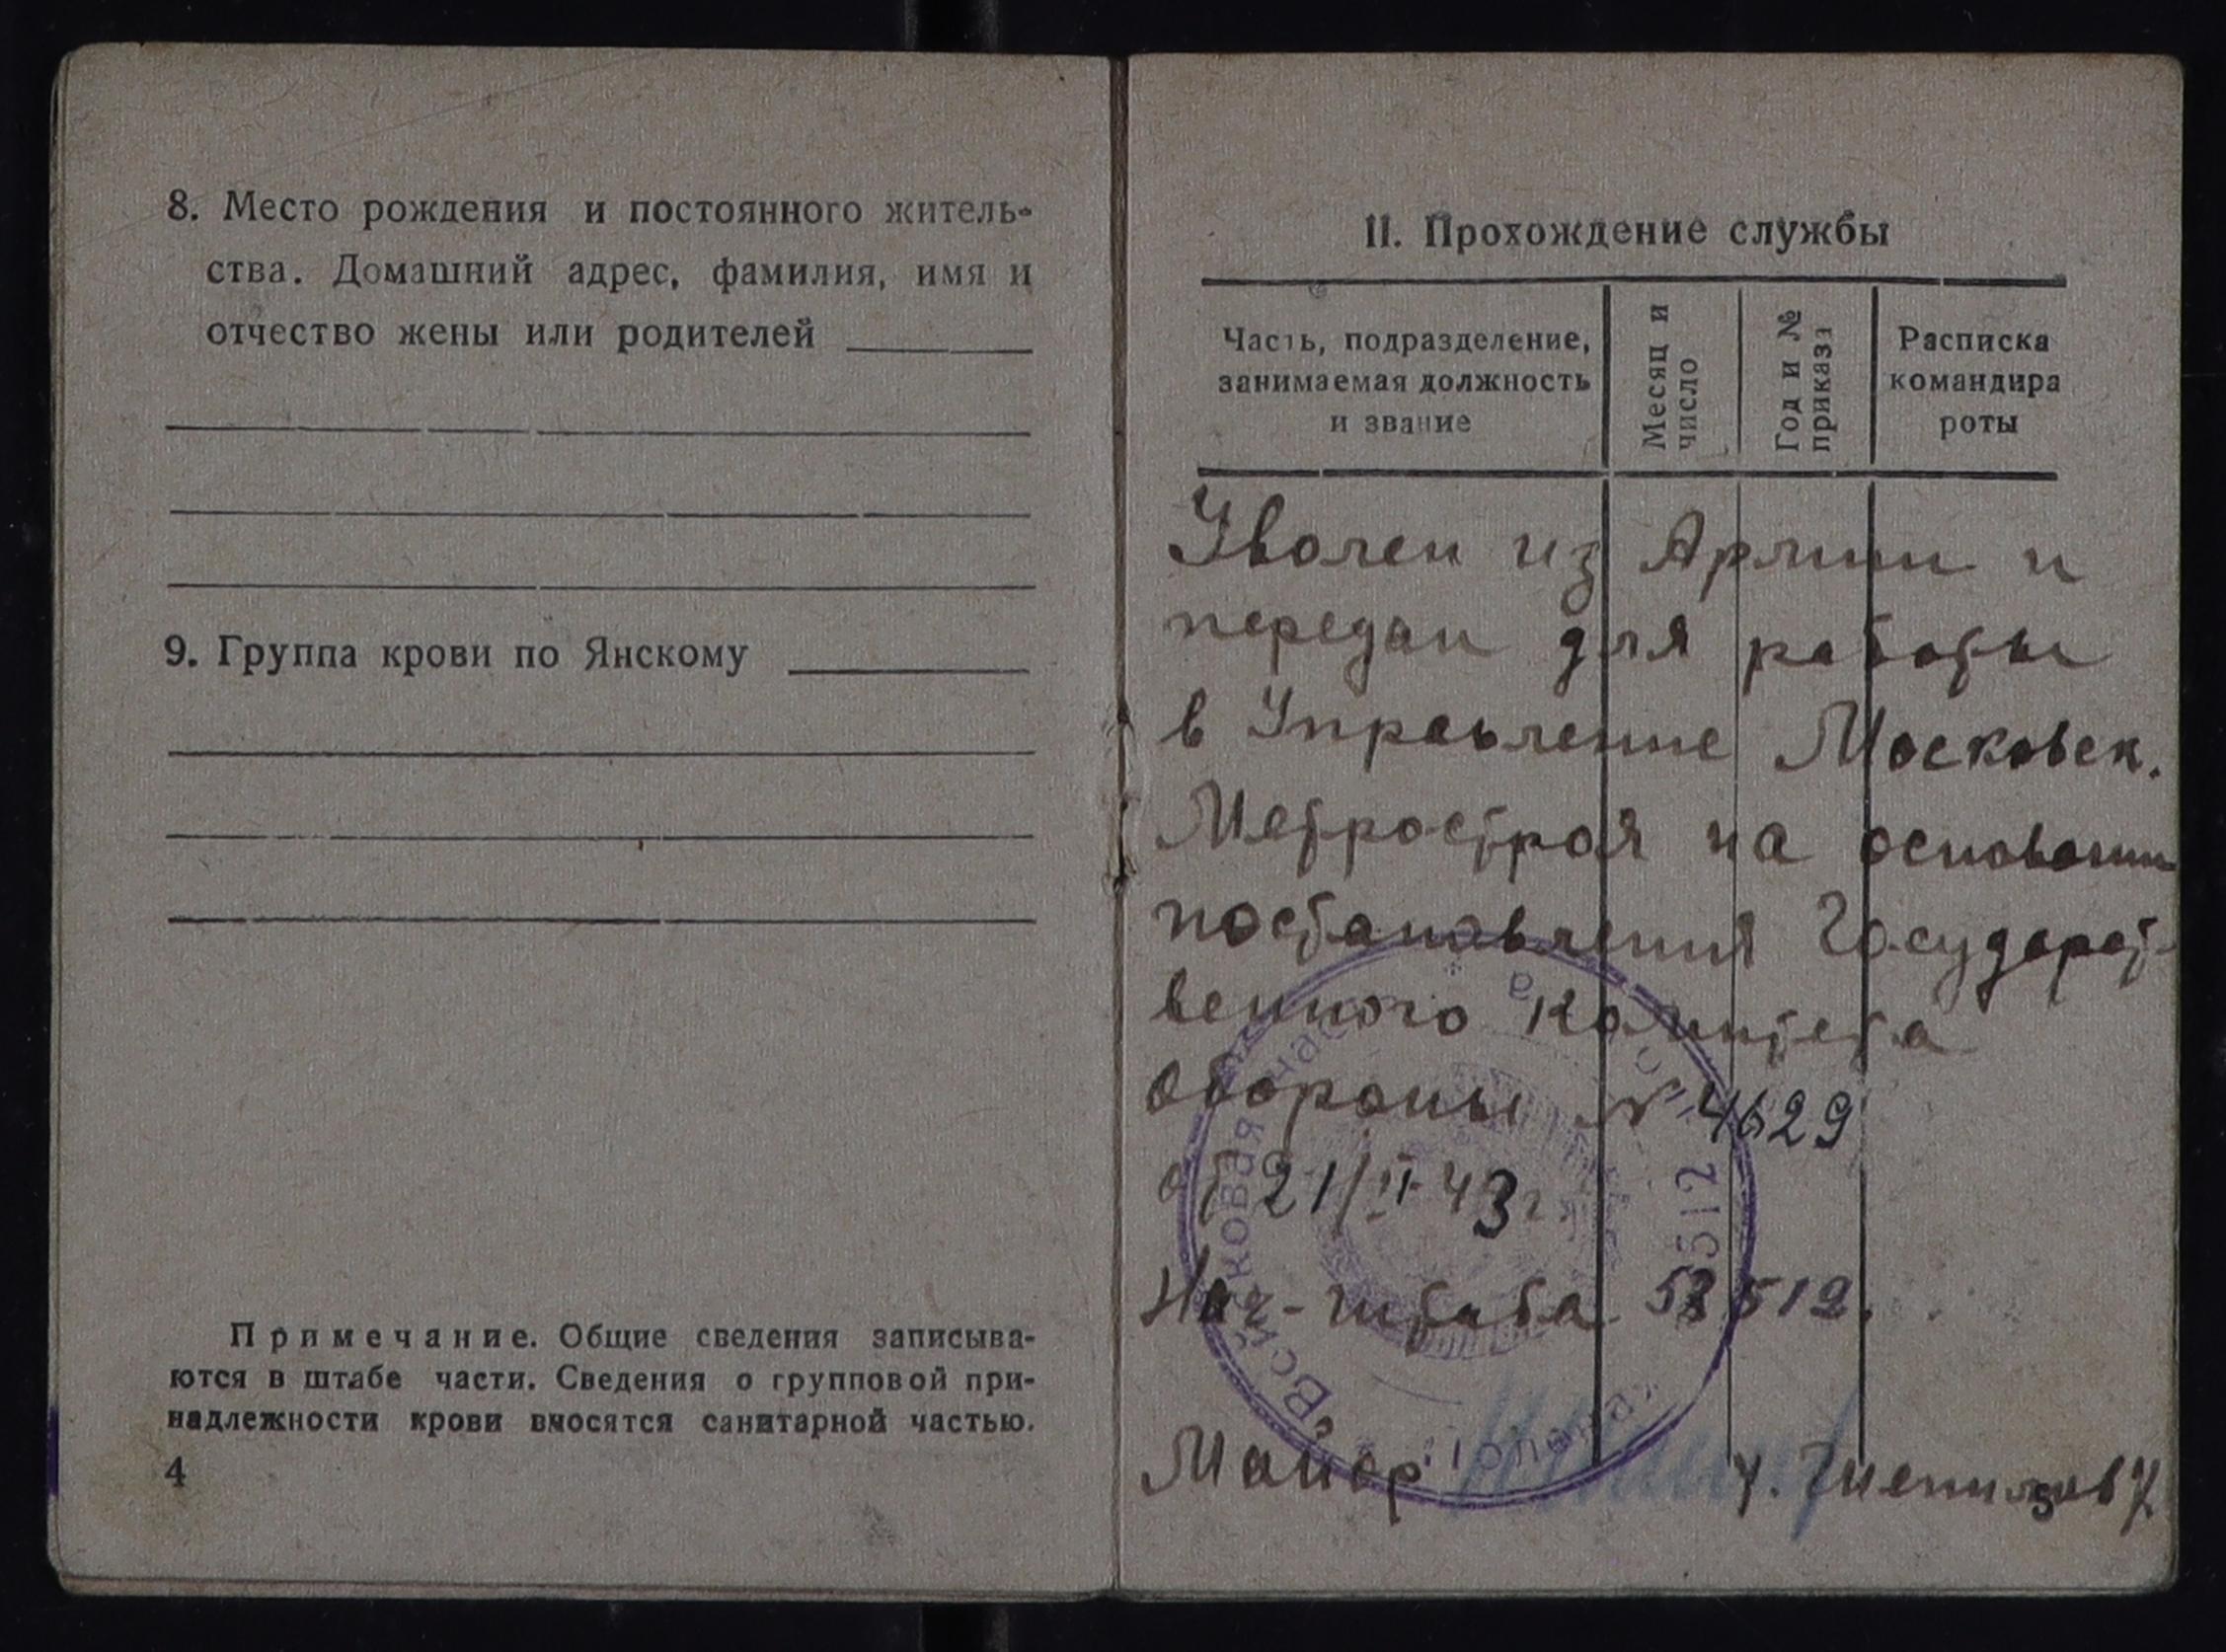 8. Место рождения и постоянного житель-
ства. Домашний адрес, фамилия, имя и
отчество жены или родителей
9. Группа крови по Янскому
Примечание. Общие сведения записыва-
ются в штабе части. Сведения о групповой при-
надлежности крови вносятся санитарной частью.
4
II. Прохождение службы
Часть, подразделение,
занимаемая должность
и звание
Месяц и
число
Год и №
приказа
Расписка
командира
роты
Уволен из Армии и
передан для работы
в Управление Московск.
Метростроя на основании
постановления Государст-
венного Комитета
Обороны № 4629
от 21/II-43г.
Нач-штаба 58512.
Майор
Войсковая часть
5